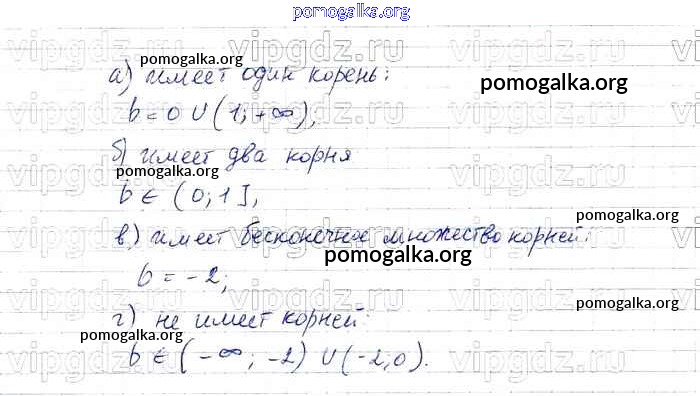 pomogalka.org
vipgdz.ru vipgdz.ru
pomogalka.org
а) имеет один корень:
pomogalka.org
b = 0 ∪ (1; +∞),
vipgdz.ru vipgdz.ru
б) имеет два корня
pomogalka.org
vipgdz.ru vipgdz.ru
b ∈ (0; 1],
pomogalka.org
в) имеет бесконечное множество корней:
vipgdz.ru vipgdz.ru
pomogalka.org
b = -2;
vipgdz.ru vipgdz.ru
pomogalka.org
г) не имеет корней:
pomogalka.org
pomogalka.org
b ∈ (-∞; -2) ∪ (-2; 0).
vipgdz.ru vipgdz.ru